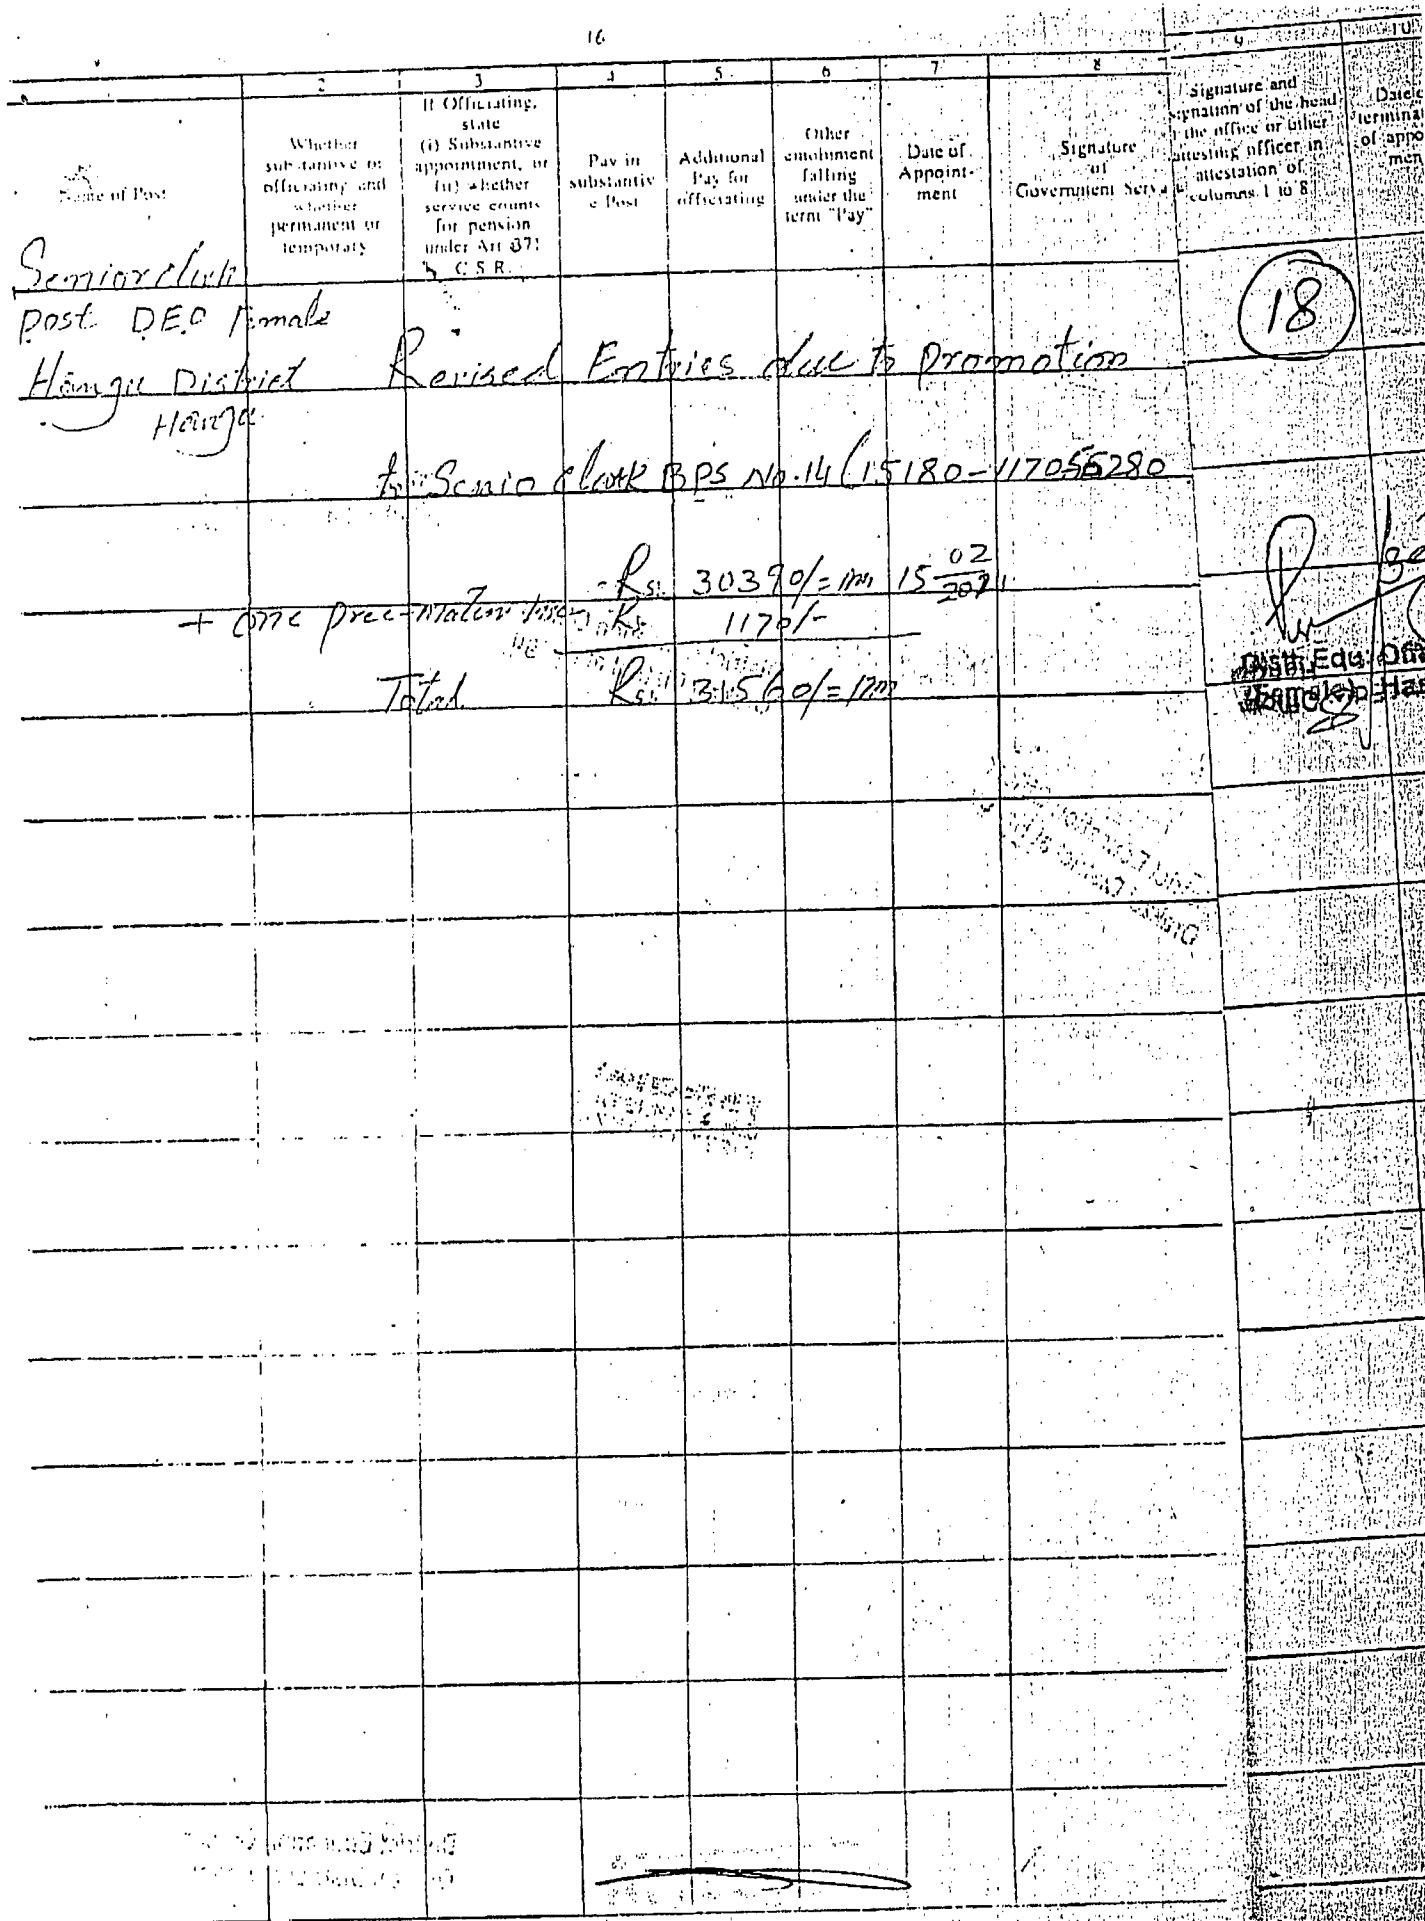 16
2 3 4 5 6 7 8 9 10
Name of Post
Whether
substantive or
officiating and
whether
permanent or
temporary
If Officiating,
state
(i) Substantive
appointment, or
(ii) whether
service counts
for pension
under Art 371
C.S.R.
Pay in
substantiv
e Post
Additional
Pay for
officiating
Other
emolument
falling
under the
term "Pay"
Date of
Appoint-
ment
Signature
of
Government Serva
Signature and
signation of the head
the office or other
attesting officer in
attestation of
columns 1 to 8
Date
termina
of appo
men
Senior Clerk
Post DEO Female
Hangu District
Hangu
18
Revised Entries due to promotion
to Senio Clerk BPS No.14 (15180-117056280
Rs. 30390/= Pm 15 02
2021
+ one pree-mature Rs 1170/-
Total Rs. 31560/= Pm
Distt: Edu: Offi
(Female) Han